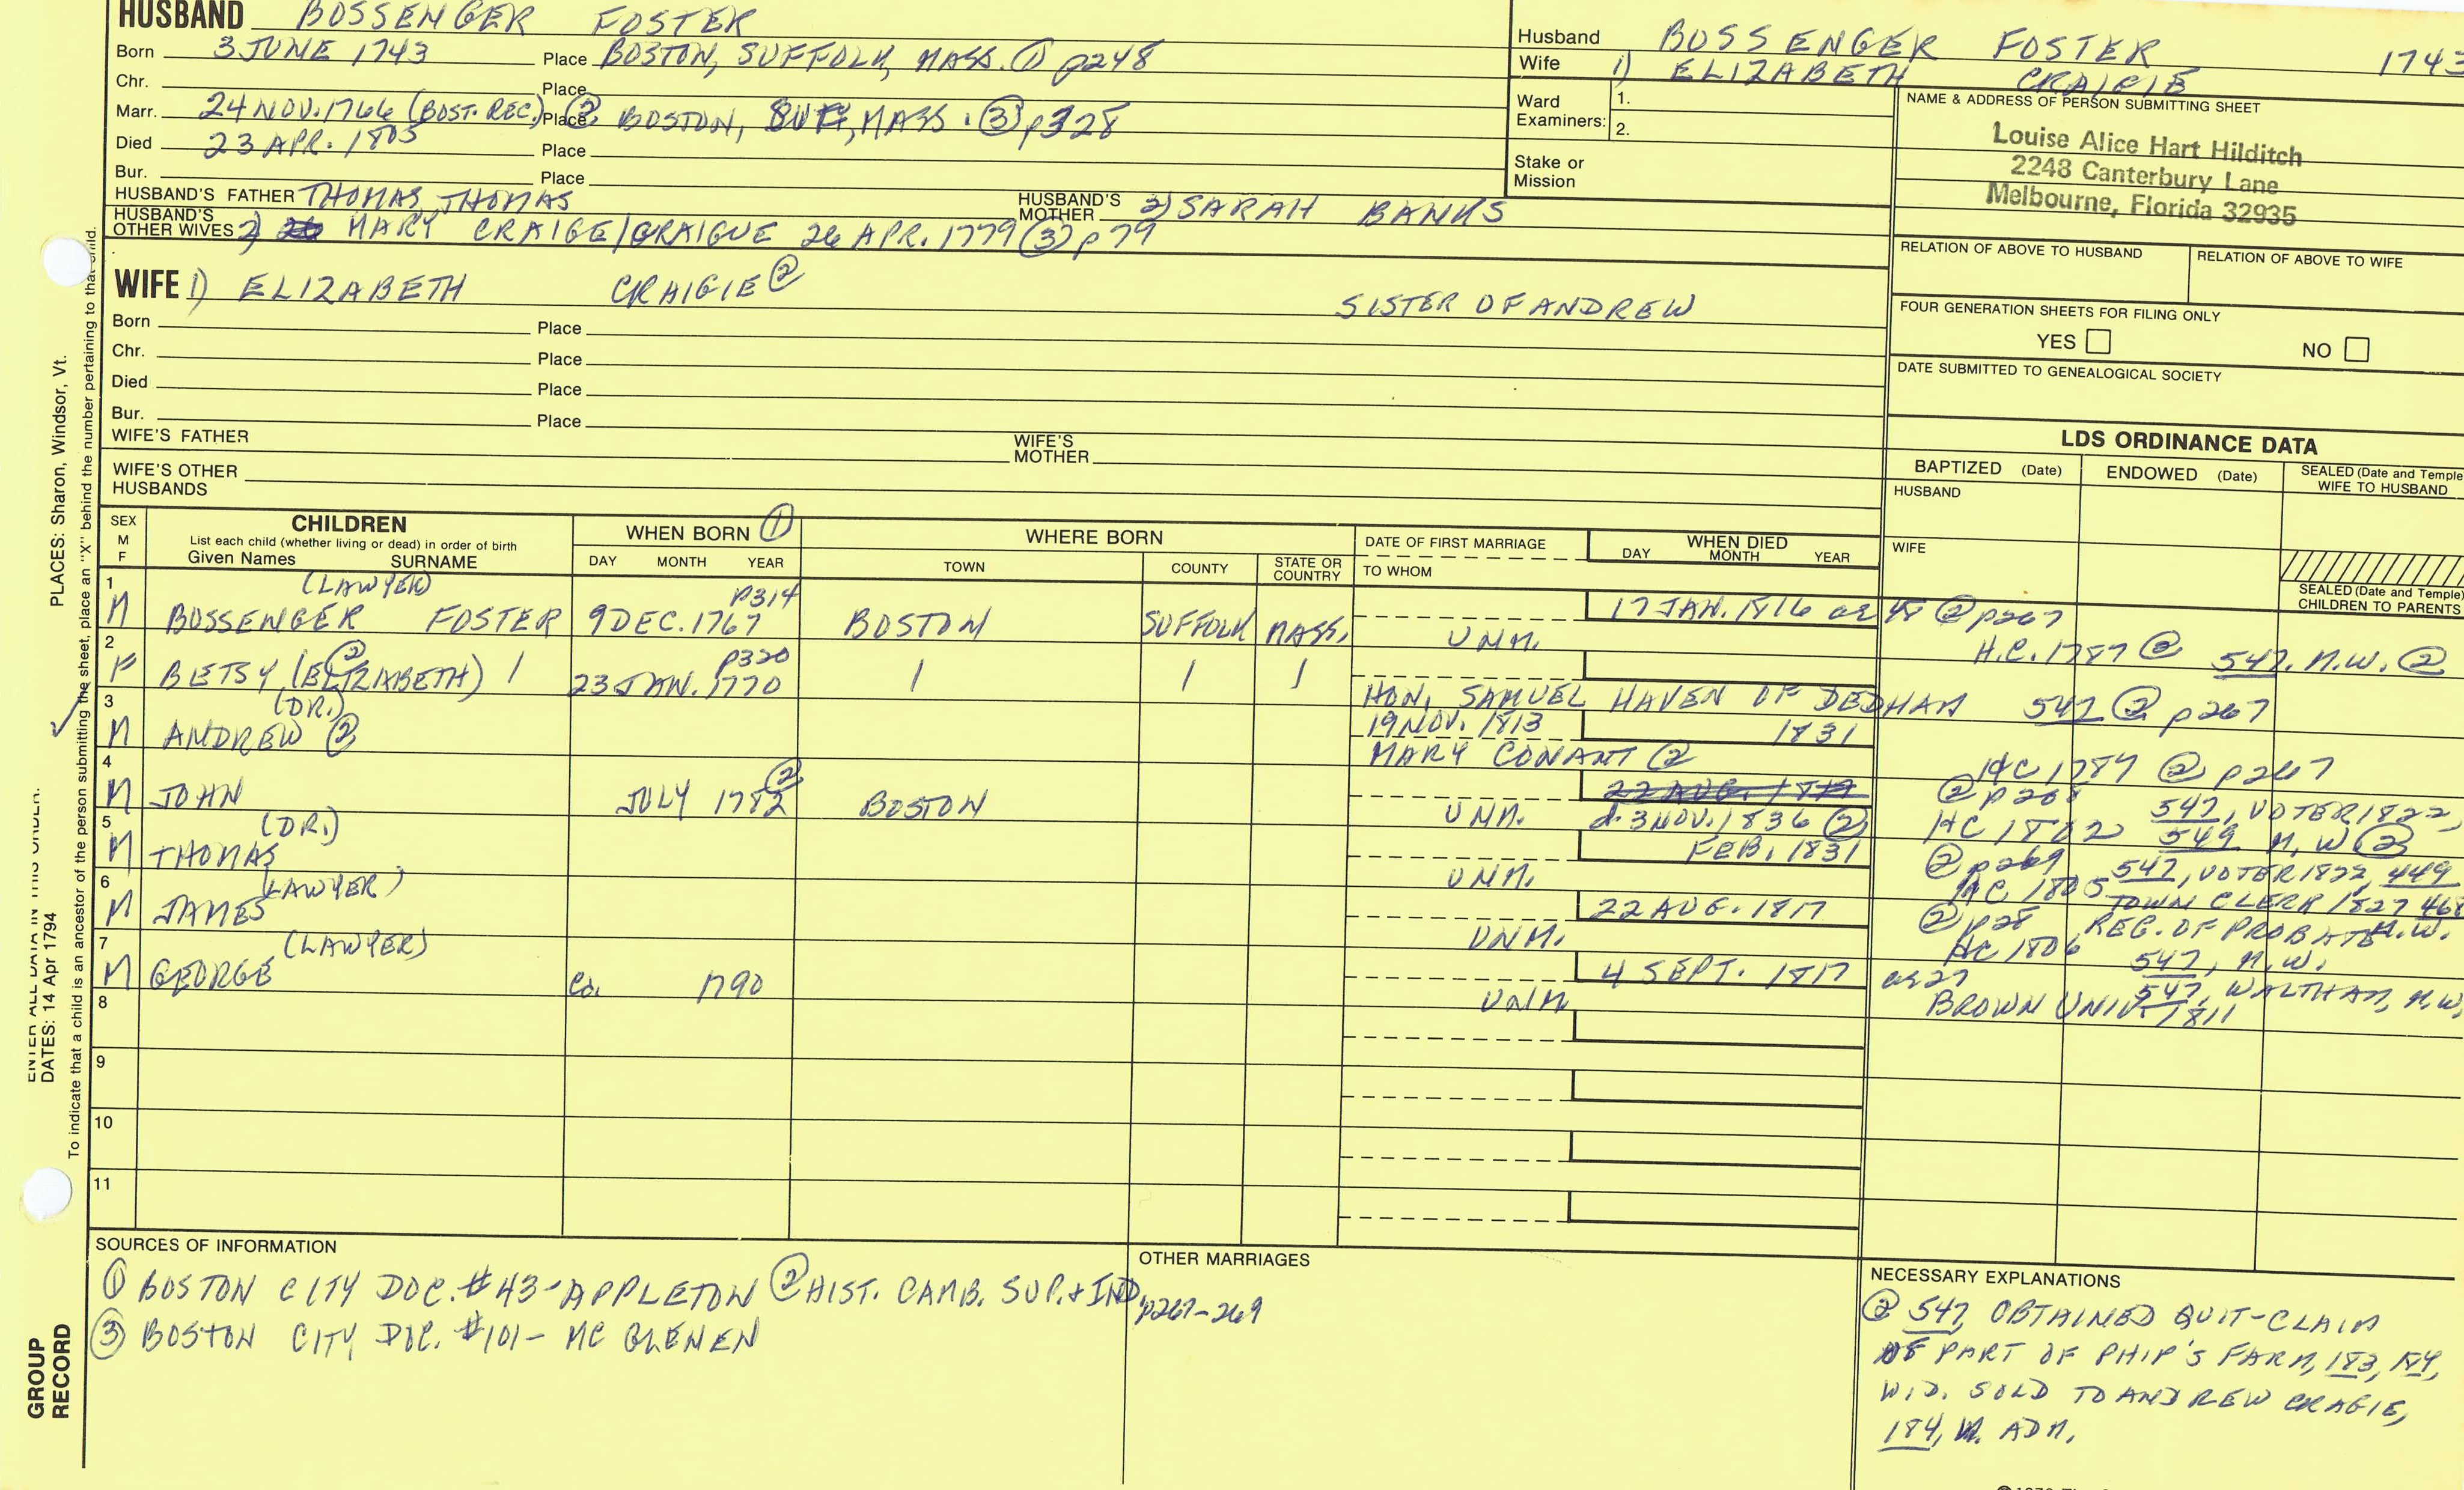 HUSBAND BOSSENGER FOSTER
Born 3 JUNE 1743 Place BOSTON, SUFFOLK, MASS. ① p248
Chr. Place
Marr. 24 NOV. 1766 (BOST. REC.) ② Place BOSTON, SUFF, MASS. ③ p328
Died 23 APR. 1805 Place
Bur. Place
HUSBAND'S FATHER THOMAS, THOMAS HUSBAND'S MOTHER 2) SARAH BANKS
HUSBAND'S OTHER WIVES 2) MARY CRAIGE/GRAIGUE 26 APR. 1779 ③ p79
WIFE 1) ELIZABETH CRAIGIE ② SISTER OF ANDREW
Born Place
Chr. Place
Died Place
Bur. Place
WIFE'S FATHER WIFE'S MOTHER
WIFE'S OTHER HUSBANDS
Husband BOSSENGER FOSTER 1743
Wife 1) ELIZABETH CRAIGIE
Ward Examiners: 1.
2.
Stake or Mission
NAME & ADDRESS OF PERSON SUBMITTING SHEET
Louise Alice Hart Hilditch
2248 Canterbury Lane
Melbourne, Florida 32935
RELATION OF ABOVE TO HUSBAND RELATION OF ABOVE TO WIFE
FOUR GENERATION SHEETS FOR FILING ONLY
YES NO
DATE SUBMITTED TO GENEALOGICAL SOCIETY
LDS ORDINANCE DATA
BAPTIZED (Date) ENDOWED (Date) SEALED (Date and Temple) WIFE TO HUSBAND
HUSBAND
WIFE
SEALED (Date and Temple) CHILDREN TO PARENTS
SEX M F
CHILDREN
List each child (whether living or dead) in order of birth
Given Names SURNAME
WHEN BORN ①
DAY MONTH YEAR
WHERE BORN
TOWN COUNTY STATE OR COUNTRY
DATE OF FIRST MARRIAGE
TO WHOM
WHEN DIED
DAY MONTH YEAR
1 (LAWYER) p314
M BOSSENGER FOSTER 9 DEC. 1767 BOSTON SUFFOLK MASS. UNM. 17 JAN. 1816 ae 48 ② p267
H.C. 1787 ② 547. M.W. ②
2 ② p320
F BETSY (ELIZABETH) 23 JAN. 1770
HON. SAMUEL HAVEN OF DEDHAM 547 ② p267
3 (DR.) 19 NOV. 1813 1831
M ANDREW ② MARY CONANT ②
HC 1789 ② p267
4 ② 22 AUG. 1817
M JOHN JULY 1782 BOSTON UNM. d. 3 NOV. 1836 ②
② p268 547, VOTER 1822,
HC 1802 549 M.W ②
5 (DR.) FEB. 1831
M THOMAS UNM.
② p269 547, VOTER 1822, 449
HC 1805 TOWN CLERK 1827 468
6 (LAWYER) 22 AUG. 1817
M JAMES UNM.
② p28 REG. OF PROBATE M.W.
HC 1806 547, M.W.
7 (LAWYER) 4 SEPT. 1817 ae 27
M GEORGE ca. 1790 UNM
547, WALTHAM, M.W.
BROWN UNIV. 1811
8
9
10
11
SOURCES OF INFORMATION
① BOSTON CITY DOC. #43-APPLETON ② HIST. CAMB. SUP. + IND. p267-269
③ BOSTON CITY DOC. #101- MC GLENEN
OTHER MARRIAGES
NECESSARY EXPLANATIONS
② 547, OBTAINED QUIT-CLAIM
OF PART OF PHIP'S FARM, 183, 184,
WID. SOLD TO ANDREW CRAGIE,
184, ADM.
PLACES: Sharon, Windsor, Vt.
ENTER ALL DATA IN THIS ORDER:
DATES: 14 Apr 1794
To indicate that a child is an ancestor of the person submitting the sheet, place an "X" behind the number pertaining to that child.
GROUP RECORD